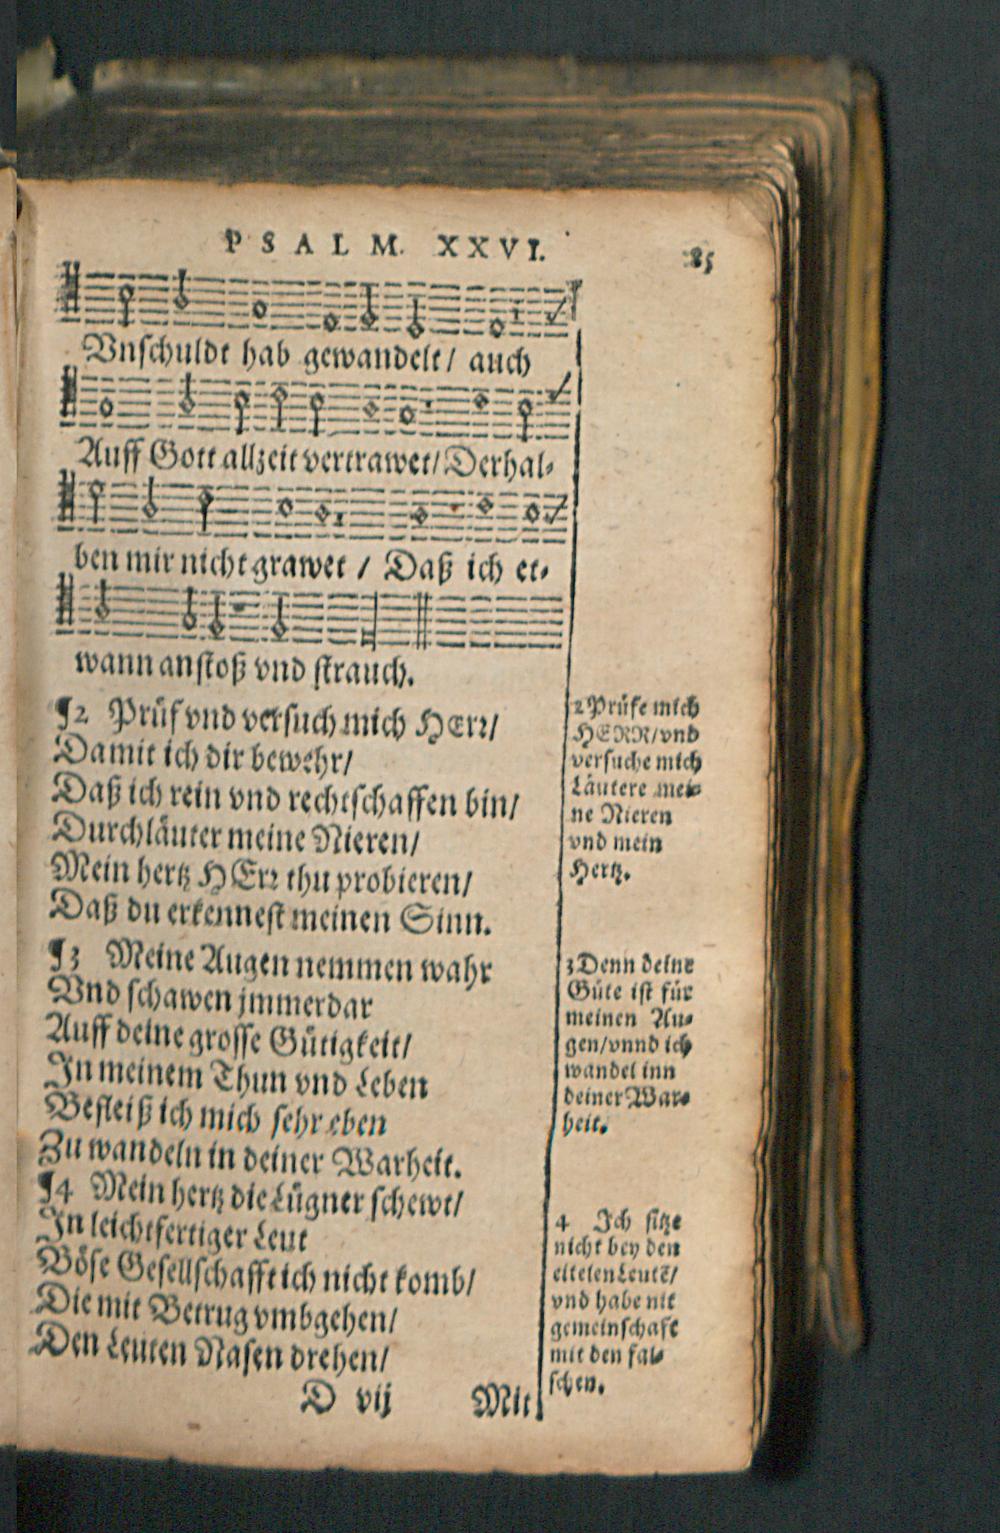 PSALM. XXVI.
85
Vnschuldt hab gewandelt / auch
Auff Gott allzeit vertrawet / Derhal-
ben mir nicht grawet / Daß ich et-
wann anstoß vnd strauch.
¶2 Prüf vnd versuch mich HErr/
Damit ich dir bewehr/
Daß ich rein vnd rechtschaffen bin/
Durchläuter meine Nieren/
Mein hertz HErr thu probieren/
Daß du erkennest meinen Sinn.
¶3 Meine Augen nemmen wahr
Vnd schawen jmmerdar
Auff deine grosse Gütigkeit/
In meinem Thun vnd Leben
Befleiß ich mich sehr eben
Zu wandeln in deiner Warheit.
¶4 Mein hertz die Lügner schewt/
In leichtfertiger Leut
Böse Gesellschafft ich nicht komb/
Die mit Betrug vmbgehen/
Den Leuten Nasen drehen/
D vij Mit
2 Prüfe mich
HERR/vnd
versuche mich
Läutere mei-
ne Nieren
vnd mein
Hertz.
3 Denn deine
Güte ist für
meinen Au-
gen/vnnd ich
wandel inn
deiner War-
heit.
4 Ich sitze
nicht bey den
eitelen Leutẽ/
vnd habe nit
gemeinschaft
mit den fal-
schen.